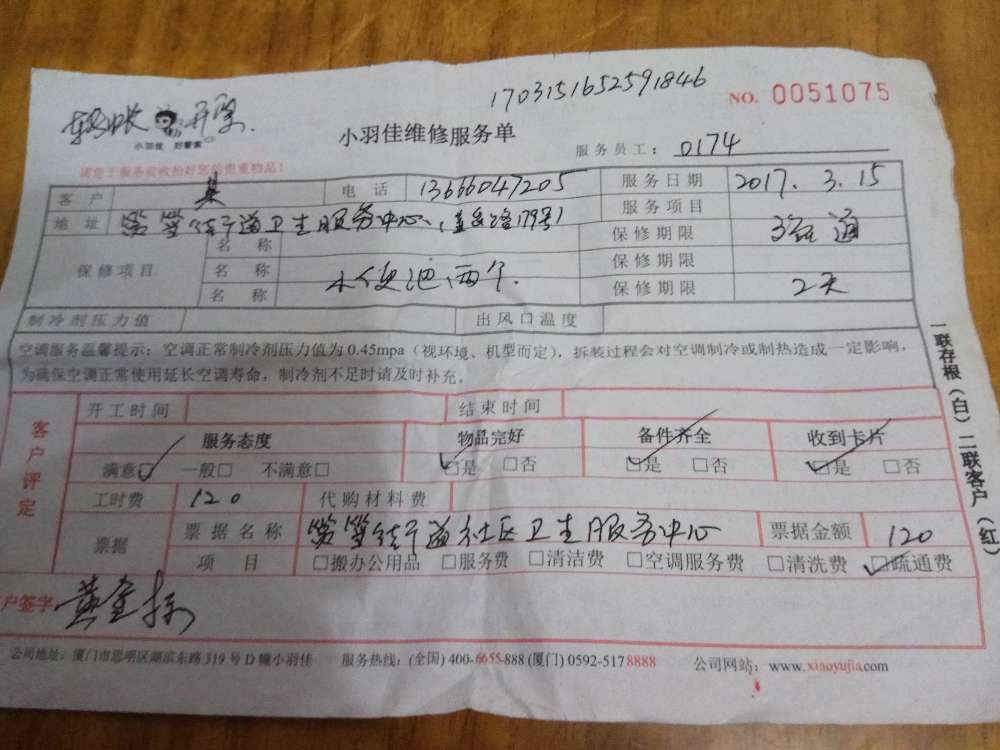 1703151652591846
NO. 0051075
开票
小羽佳 好管家
小羽佳维修服务单
服务员工: 0174
请您于服务前收拾好您的贵重物品!
客户 电话 13666047205 服务日期 2017.3.15
地址 筼筜街道卫生服务中心 服务项目 疏通
保修项目
名称 保修期限
名称 小便池两个. 保修期限
名称 保修期限 2天
制冷剂压力值 出风口温度
空调服务温馨提示: 空调正常制冷剂压力值为0.45mpa (视环境、机型而定), 拆装过程会对空调制冷或制热造成一定影响,
为确保空调正常使用延长空调寿命, 制冷剂不足时请及时补充。
客户评定
开工时间 结束时间
服务态度 物品完好 备件齐全 收到卡片
满意☑ 一般□ 不满意□ ☑是 □否 ☑是 □否 ☑是 □否
工时费 120 代购材料费
票据 票据名称 筼筜街道社区卫生服务中心 票据金额 120
项目 □搬办公用品 □服务费 □清洁费 □空调服务费 □清洗费 ☑疏通费
客户签字
公司地址: 厦门市思明区湖滨东路 319 号 D 幢小羽佳 服务热线: (全国) 400-6655-888 (厦门) 0592-5178888 公司网站: www.xiaoyujia.com
一联存根(白) 二联客户(红)